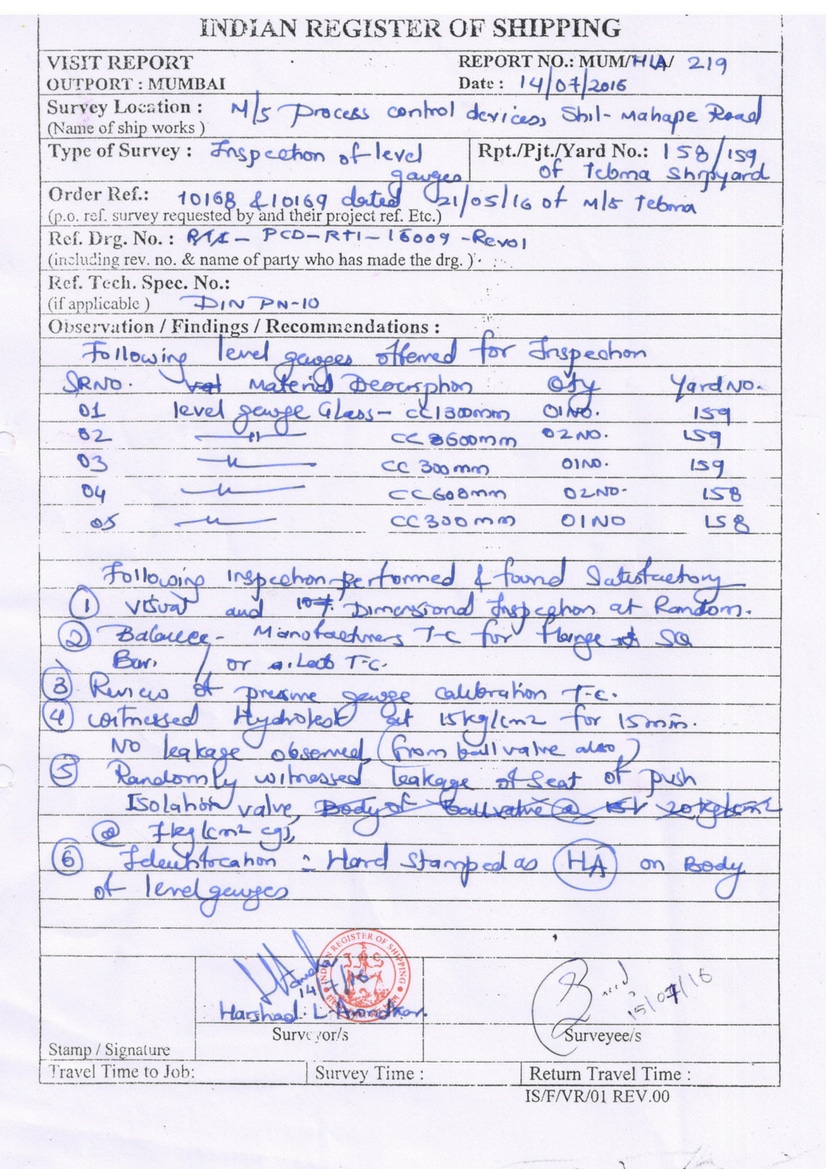 INDIAN REGISTER OF SHIPPING
VISIT REPORT
REPORT NO.: MUM/HLA/ 219
OUTPORT : MUMBAI
Date : 14/07/2016
Survey Location : M/s Process control devices, Shil-Mahape Road
(Name of ship works )
Type of Survey : Inspection of level gauges
Rpt./Pjt./Yard No.: 158/159
of Tebma Shipyard
Order Ref.: 10168 & 10169 dated 21/05/16 of M/s Tebma
(p.o. ref. survey requested by and their project ref. Etc.)
Ref. Drg. No. : PCD-RTI-16009-Rev01
(including rev. no. & name of party who has made the drg. )
Ref. Tech. Spec. No.:
(if applicable ) DIN PN-10
Observation / Findings / Recommendations :
Following level gauges offered for Inspection
SRNO. Material Description Qty Yard NO.
01 level gauge Glass- CC1300mm 01NO. 159
02 —"— CC 600mm 02 NO. 159
03 —"— CC 300mm 01NO. 159
04 —"— CC 600mm 02NO. 158
05 —"— CC 300mm 01NO 158
Following inspection performed & found Satisfactory
1 Visual and 10% Dimensional Inspection at Random.
2 Balance- Manufacturers T-C for flange SQ
Bar. / or Lab T.C.
3 Review of pressure gauge calibration T.C.
4 witnessed Hydrotest at 15kg/cm2 for 15min.
NO leakage observed, (from ball valve also)
5 Randomly witnessed leakage of Seat of push
Isolation valve, Body of ball valve @ 20kg/cm2
@ 7kg/cm2 (g),
6 Identification : Hard Stamped as HA on Body
of level gauges
INDIAN REGISTER OF SHIPPING
IRS
14/7/16
Harshad L Arondkar
15/07/16
Surveyor/s
Surveyee/s
Stamp / Signature
Travel Time to Job:
Survey Time :
Return Travel Time :
IS/F/VR/01 REV.00